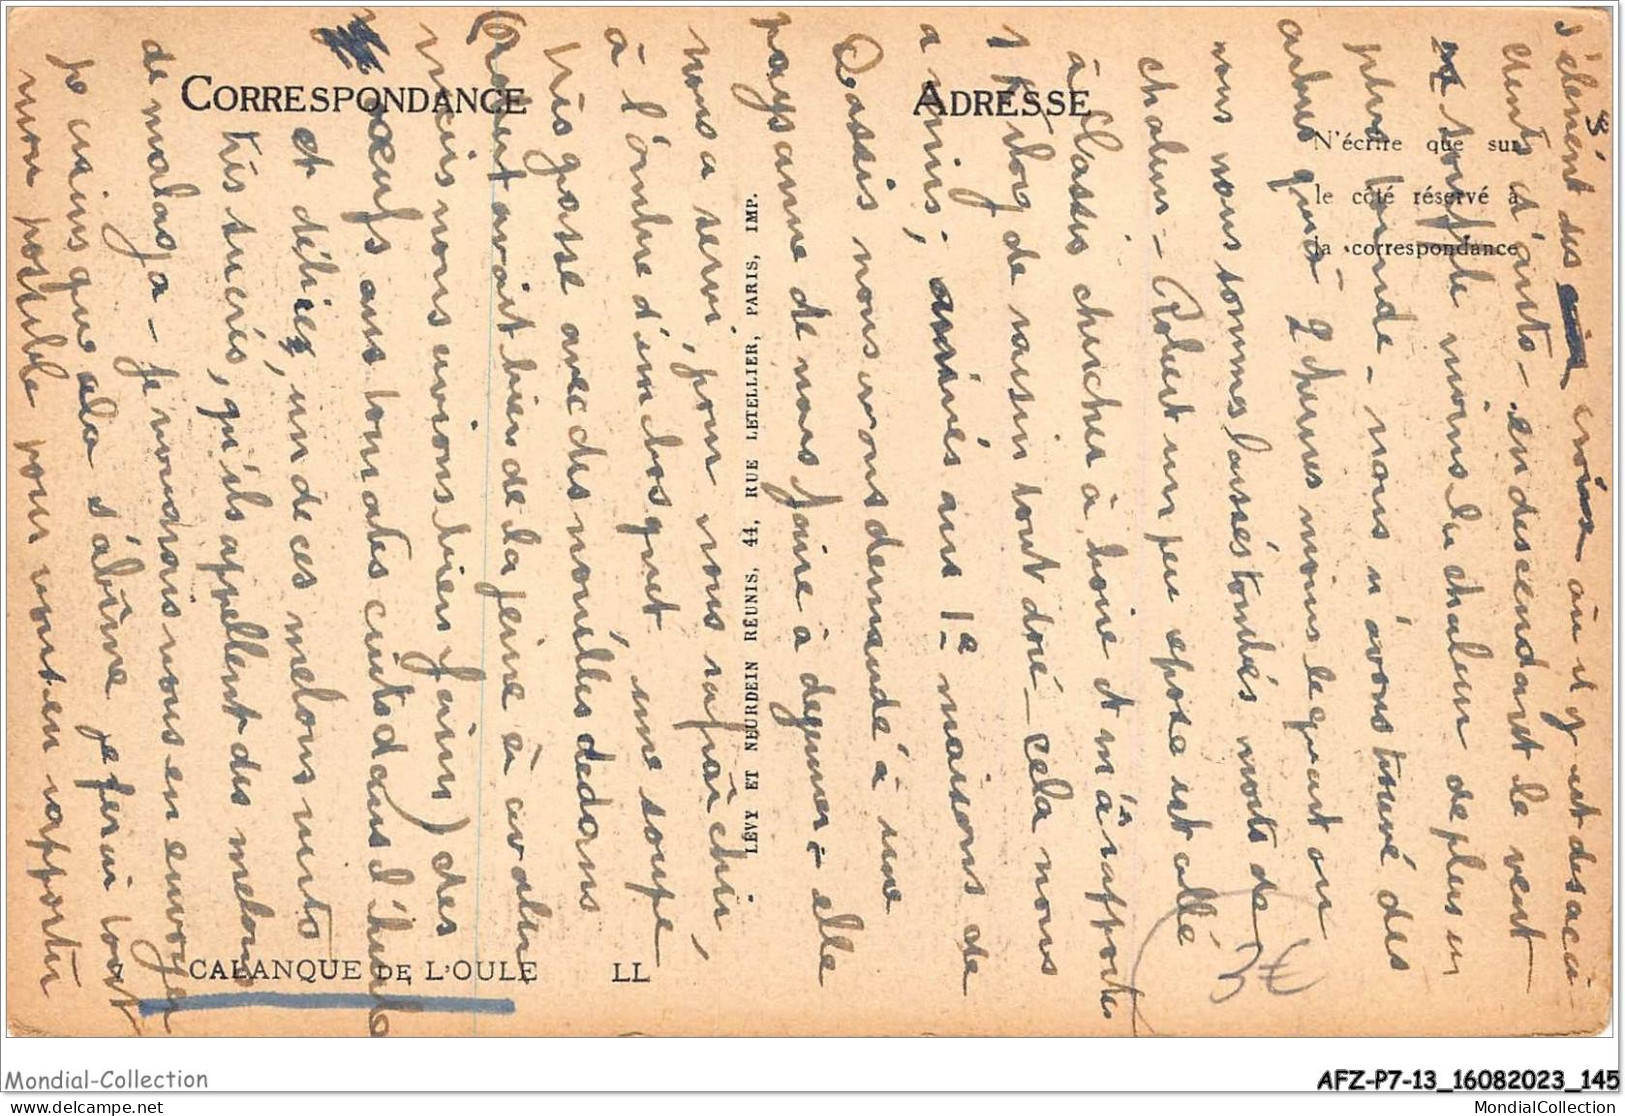 CORRESPONDANCE
ADRESSE
N'écrire que sur
le côté réservé à
la correspondance
3
s'élèvent des croix où il y eut des acci-
dents d'auto - en descendant le vent
souffle moins la chaleur de plus en
plus lourde - nous n'avons trouvé des
arbres qu'à 2 heures moins le quart où
nous nous sommes laissés tombés morts de
chaleur - Robert un peu reposé est allé
à Cassis chercher à boire et m'a rapporté
1 kilog de raisin tout doré - cela nous
a ranimés; arrivés aux 1e maisons de
Cassis nous avons demandé à une
paysanne de nous faire à déjeuner - elle
nous a servi, pour nous rafraîchir,
à l'ombre d'un bosquet, une soupe
très grasse avec des nouilles dedans
(Robert avait bien de la peine à avaler
mais nous avions bien faim) des
œufs aux tomates cuits dans l'huile
et délices, un de ces melons verts
très sucrés, qu'ils appellent des melons
de malaga - je voudrais vous en envoyer
je crains que cela s'abîme je ferai tout
mon possible pour vous en rapporter
LÉVY ET NEURDEIN RÉUNIS, 44, RUE LETELLIER, PARIS, IMP.
3€
7 CALANQUE DE L'OULE LL
Mondial-Collection
AFZ-P7-13_16082023_145
delcampe.net
MondialCollection